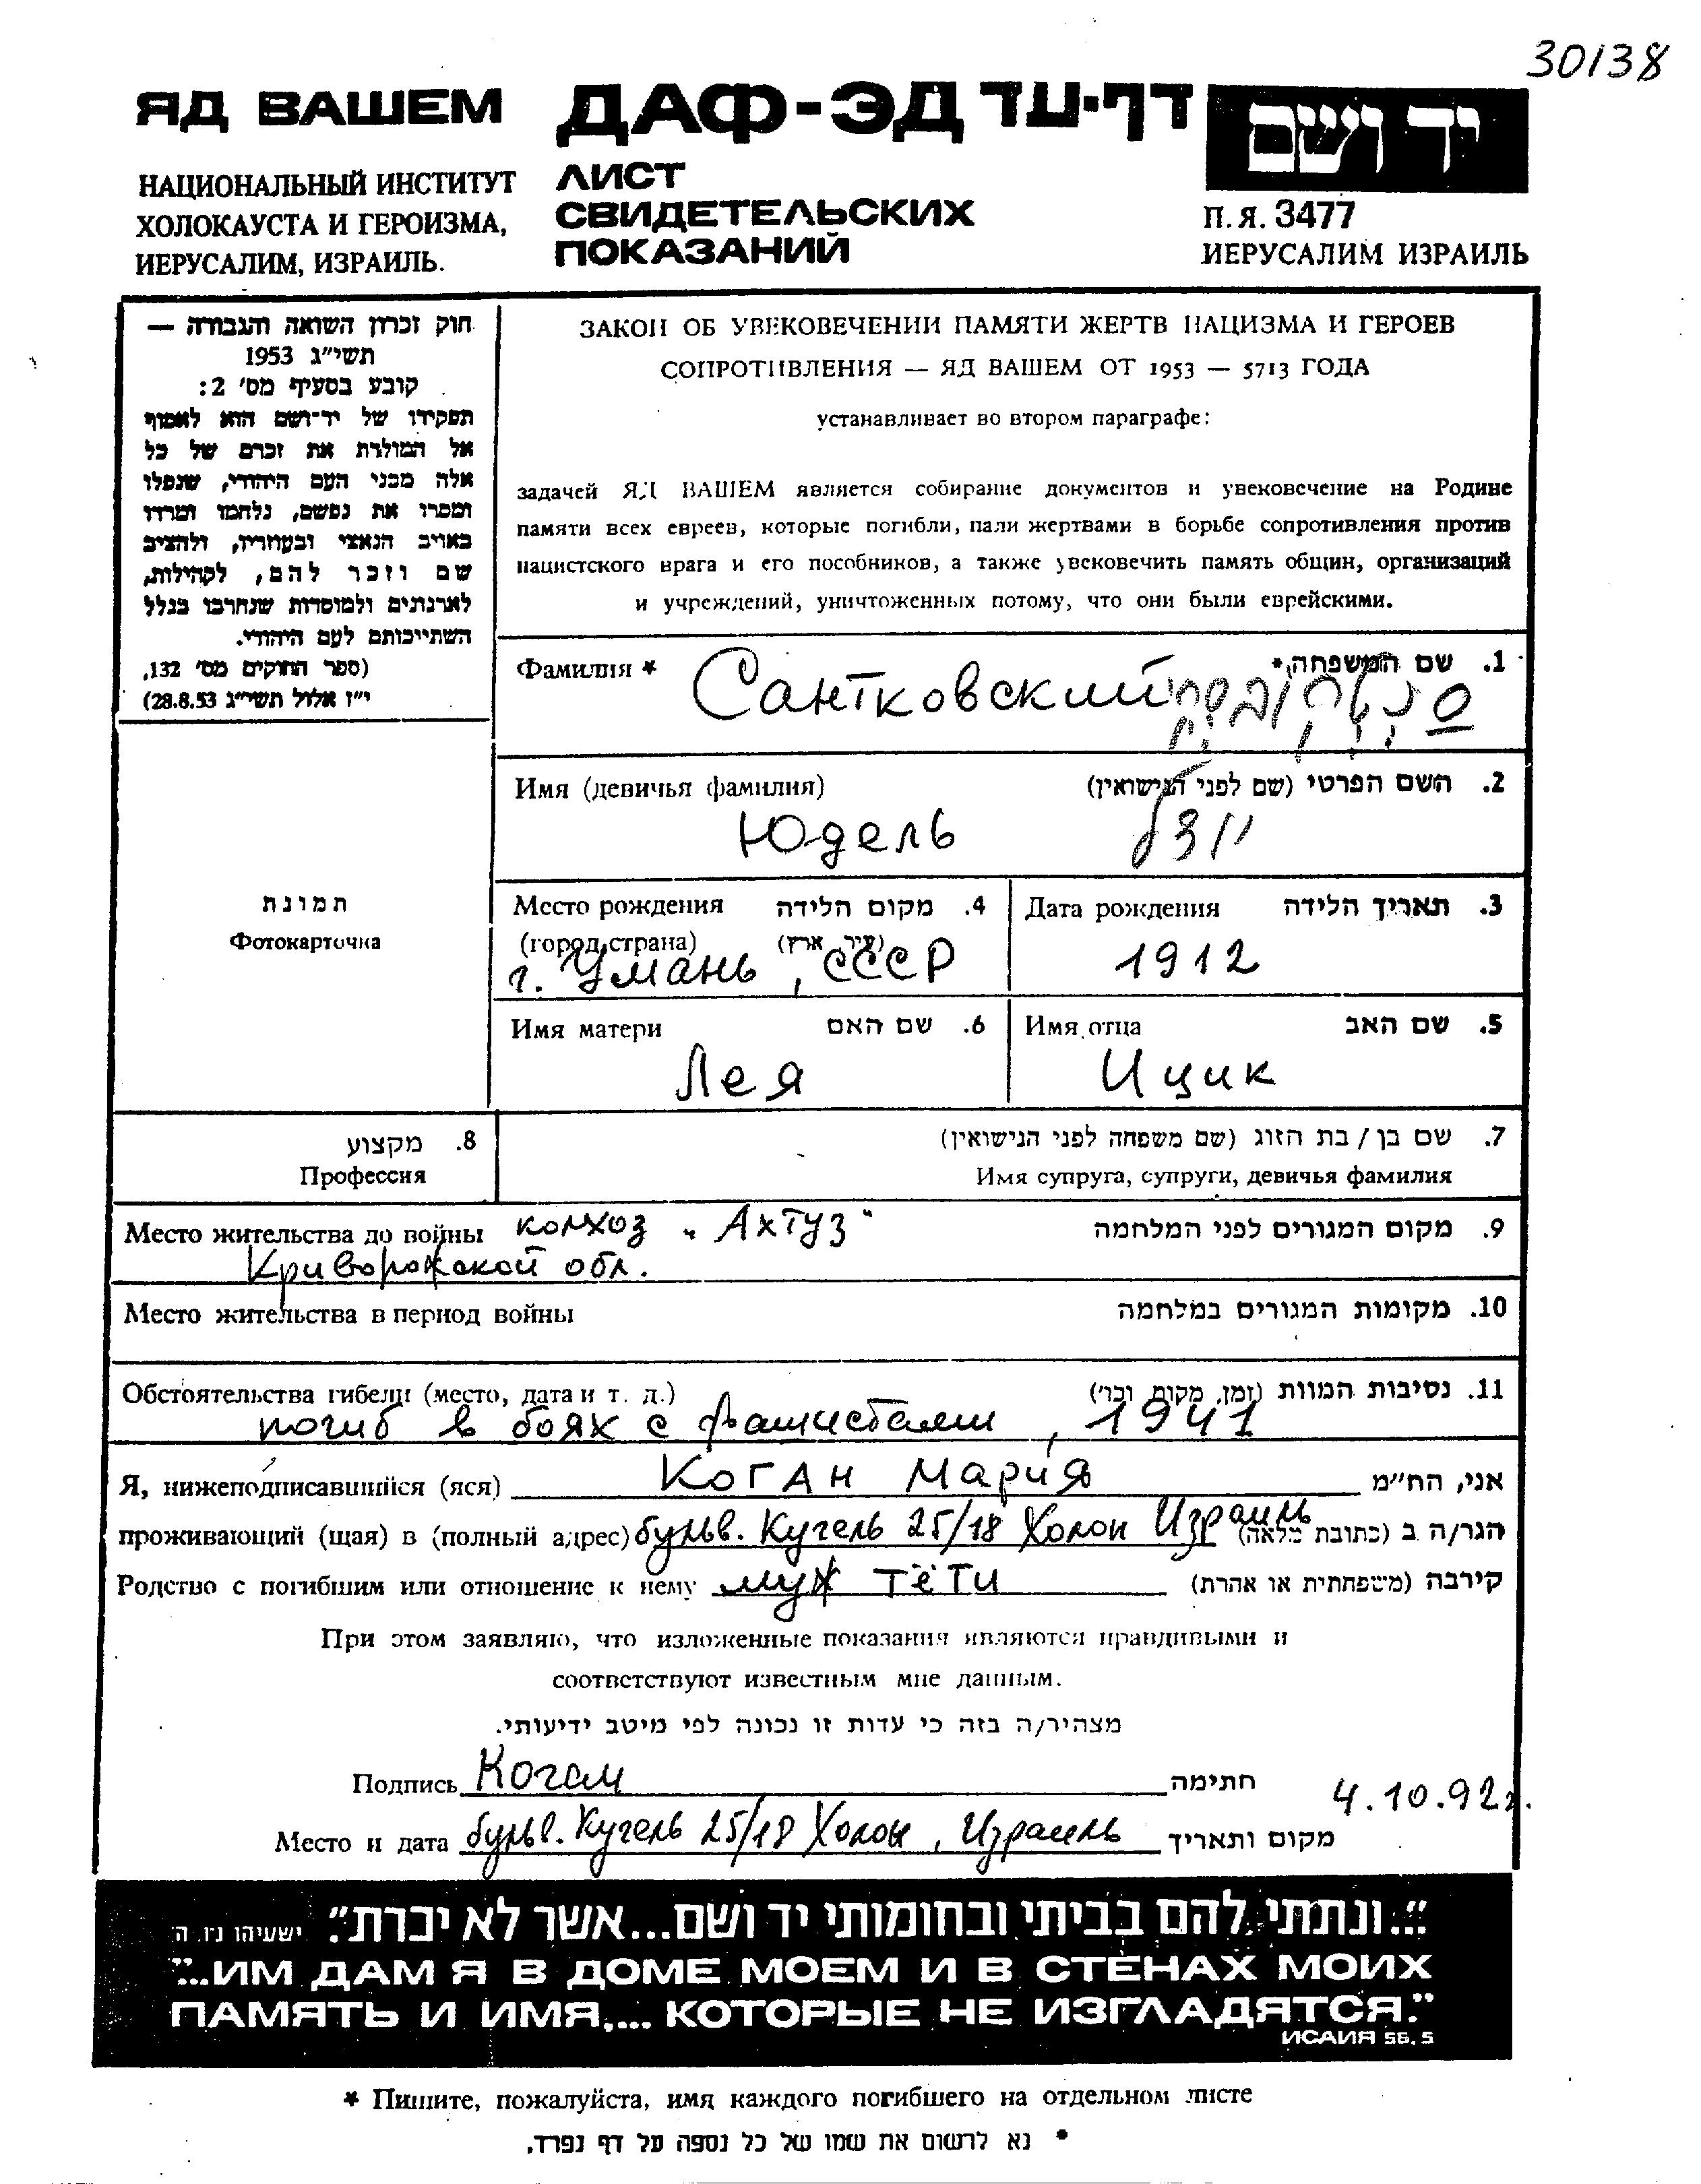 30138
ЯД ВАШЕМ
ДАФ-ЭД דף-עד
יד ושם
НАЦИОНАЛЬНЫЙ ИНСТИТУТ
ХОЛОКАУСТА И ГЕРОИЗМА,
ИЕРУСАЛИМ, ИЗРАИЛЬ.
ЛИСТ
СВИДЕТЕЛЬСКИХ
ПОКАЗАНИЙ
П.Я. 3477
ИЕРУСАЛИМ ИЗРАИЛЬ
חוק זכרון השואה והגבורה —
תשי״ג 1953
קובע בסעיף מס׳ 2:
תפקידו של יד־ושם הוא לאסוף
אל המולדת את זכרם של כל
אלה מבני העם היהודי, שנפלו
ומסרו את נפשם, נלחמו ומרדו
באויב הנאצי ובעוזריו, ולהציב
שם וזכר להם, לקהילות,
לארגונים ולמוסדות שנחרבו בגלל
השתייכותם לעם היהודי.
(ספר החוקים מס׳ 132,
י״ז אלול תשי״ג 28.8.53)
ЗАКОН ОБ УВЕКОВЕЧЕНИИ ПАМЯТИ ЖЕРТВ НАЦИЗМА И ГЕРОЕВ
СОПРОТИВЛЕНИЯ — ЯД ВАШЕМ ОТ 1953 — 5713 ГОДА
устанавливает во втором параграфе:
задачей ЯД ВАШЕМ является собирание документов и увековечение на Родине
памяти всех евреев, которые погибли, пали жертвами в борьбе сопротивления против
нацистского врага и его пособников, а также увековечить память общин, организаций
и учреждений, уничтоженных потому, что они были еврейскими.
Фамилия * Сантковский 1. שם המשפחה*
Имя (девичья фамилия) 2. השם הפרטי (שם לפני הנישואין)
Юдель יודל
תמונת
Фотокарточка
Место рождения 4. מקום הלידה
(город, страна) (עיר, ארץ)
г. Умань, СССР
Дата рождения 3. תאריך הלידה
1912
Имя матери 6. שם האם
Лея
Имя отца 5. שם האב
Ицик
8. מקצוע
Профессия
7. שם בן / בת הזוג (שם משפחה לפני הנישואין)
Имя супруга, супруги, девичья фамилия
Место жительства до войны колхоз "Ахтуз" 9. מקום המגורים לפני המלחמה
Криворожской обл.
Место жительства в период войны 10. מקומות המגורים במלחמה
Обстоятельства гибели (место, дата и т. д.) 11. נסיבות המוות (זמן, מקום וכו׳)
погиб в боях с фашистами, 1941
Я, нижеподписавшийся (яся) Коган Мария אני, הח״מ
проживающий (щая) в (полный адрес) бульв. Кугель 25/18 Холон Израиль הגר/ה ב (כתובת מלאה)
Родство с погибшим или отношение к нему муж тёти קירבה (משפחתית או אחרת)
При этом заявляю, что изложенные показания являются правдивыми и
соответствуют известным мне данным.
מצהיר/ה בזה כי עדות זו נכונה לפי מיטב ידיעותי.
Подпись Коган חתימה
4.10.92г.
Место и дата бульв. Кугель 25/18 Холон, Израиль מקום ותאריך
״...ונתתי להם בביתי ובחומותי יד ושם...אשר לא יכרת״. ישעיהו נו, ה
"...ИМ ДАМ Я В ДОМЕ МОЕМ И В СТЕНАХ МОИХ
ПАМЯТЬ И ИМЯ,... КОТОРЫЕ НЕ ИЗГЛАДЯТСЯ."
ИСАИЯ 56, 5
* Пишите, пожалуйста, имя каждого погибшего на отдельном листе
* נא לרשום את שמו של כל נספה על דף נפרד.